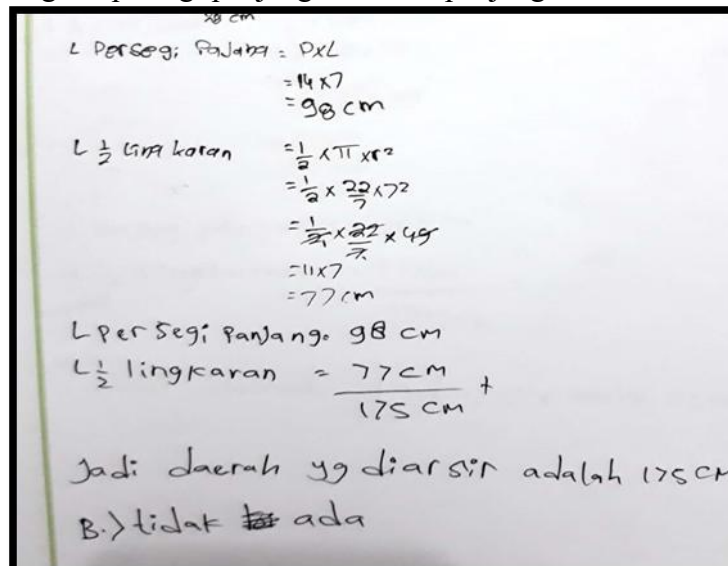 28 cm
L Persegi Panjang = PxL
= 14 x 7
= 98 cm
L 1/2 lingkaran = 1/2 x π x r²
= 1/2 x 22/7 x 7²
= 1/2 x 22/7 x 49
= 11x7
= 77 cm
L Persegi Panjang. 98 cm
L 1/2 lingkaran = 77 cm
175 cm +
Jadi daerah yg diarsir adalah 175 cm
B.) tidak ada